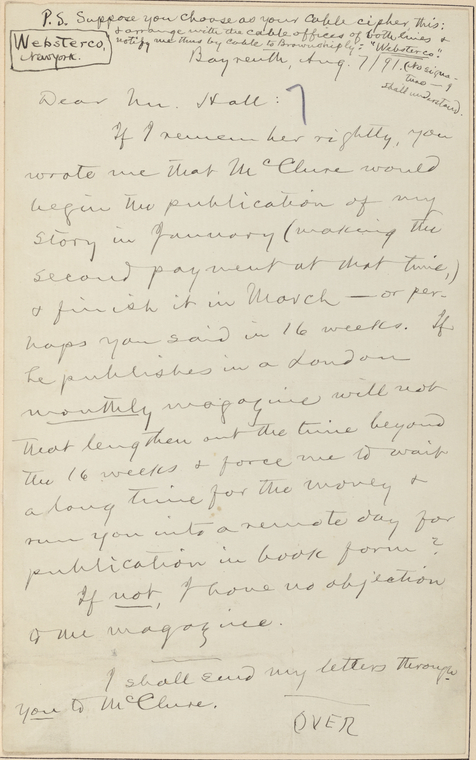 P.S. Suppose you choose as your cable cipher, this:
& arrange with the cable offices of both lines &
notify me thus by cable to Brownship: "Websterco."
Websterco,
New York.
(No signa-
ture — I
shall understand.
Bayreuth, Aug. 7/91.
Dear Mr. Hall:
7
If I remember rightly, you
wrote me that McClure would
begin the publication of my
story in January (making the
second payment at that time,)
& finish it in March — or per-
haps you said in 16 weeks. If
he publishes in a London
monthly magazine will not
that lengthen out the time beyond
the 16 weeks & force me to wait
a long time for the money &
run you into a remote day for
publication in book form?
If not, I have no objection
to the magazine.
I shall send my letters through
you to McClure.
OVER